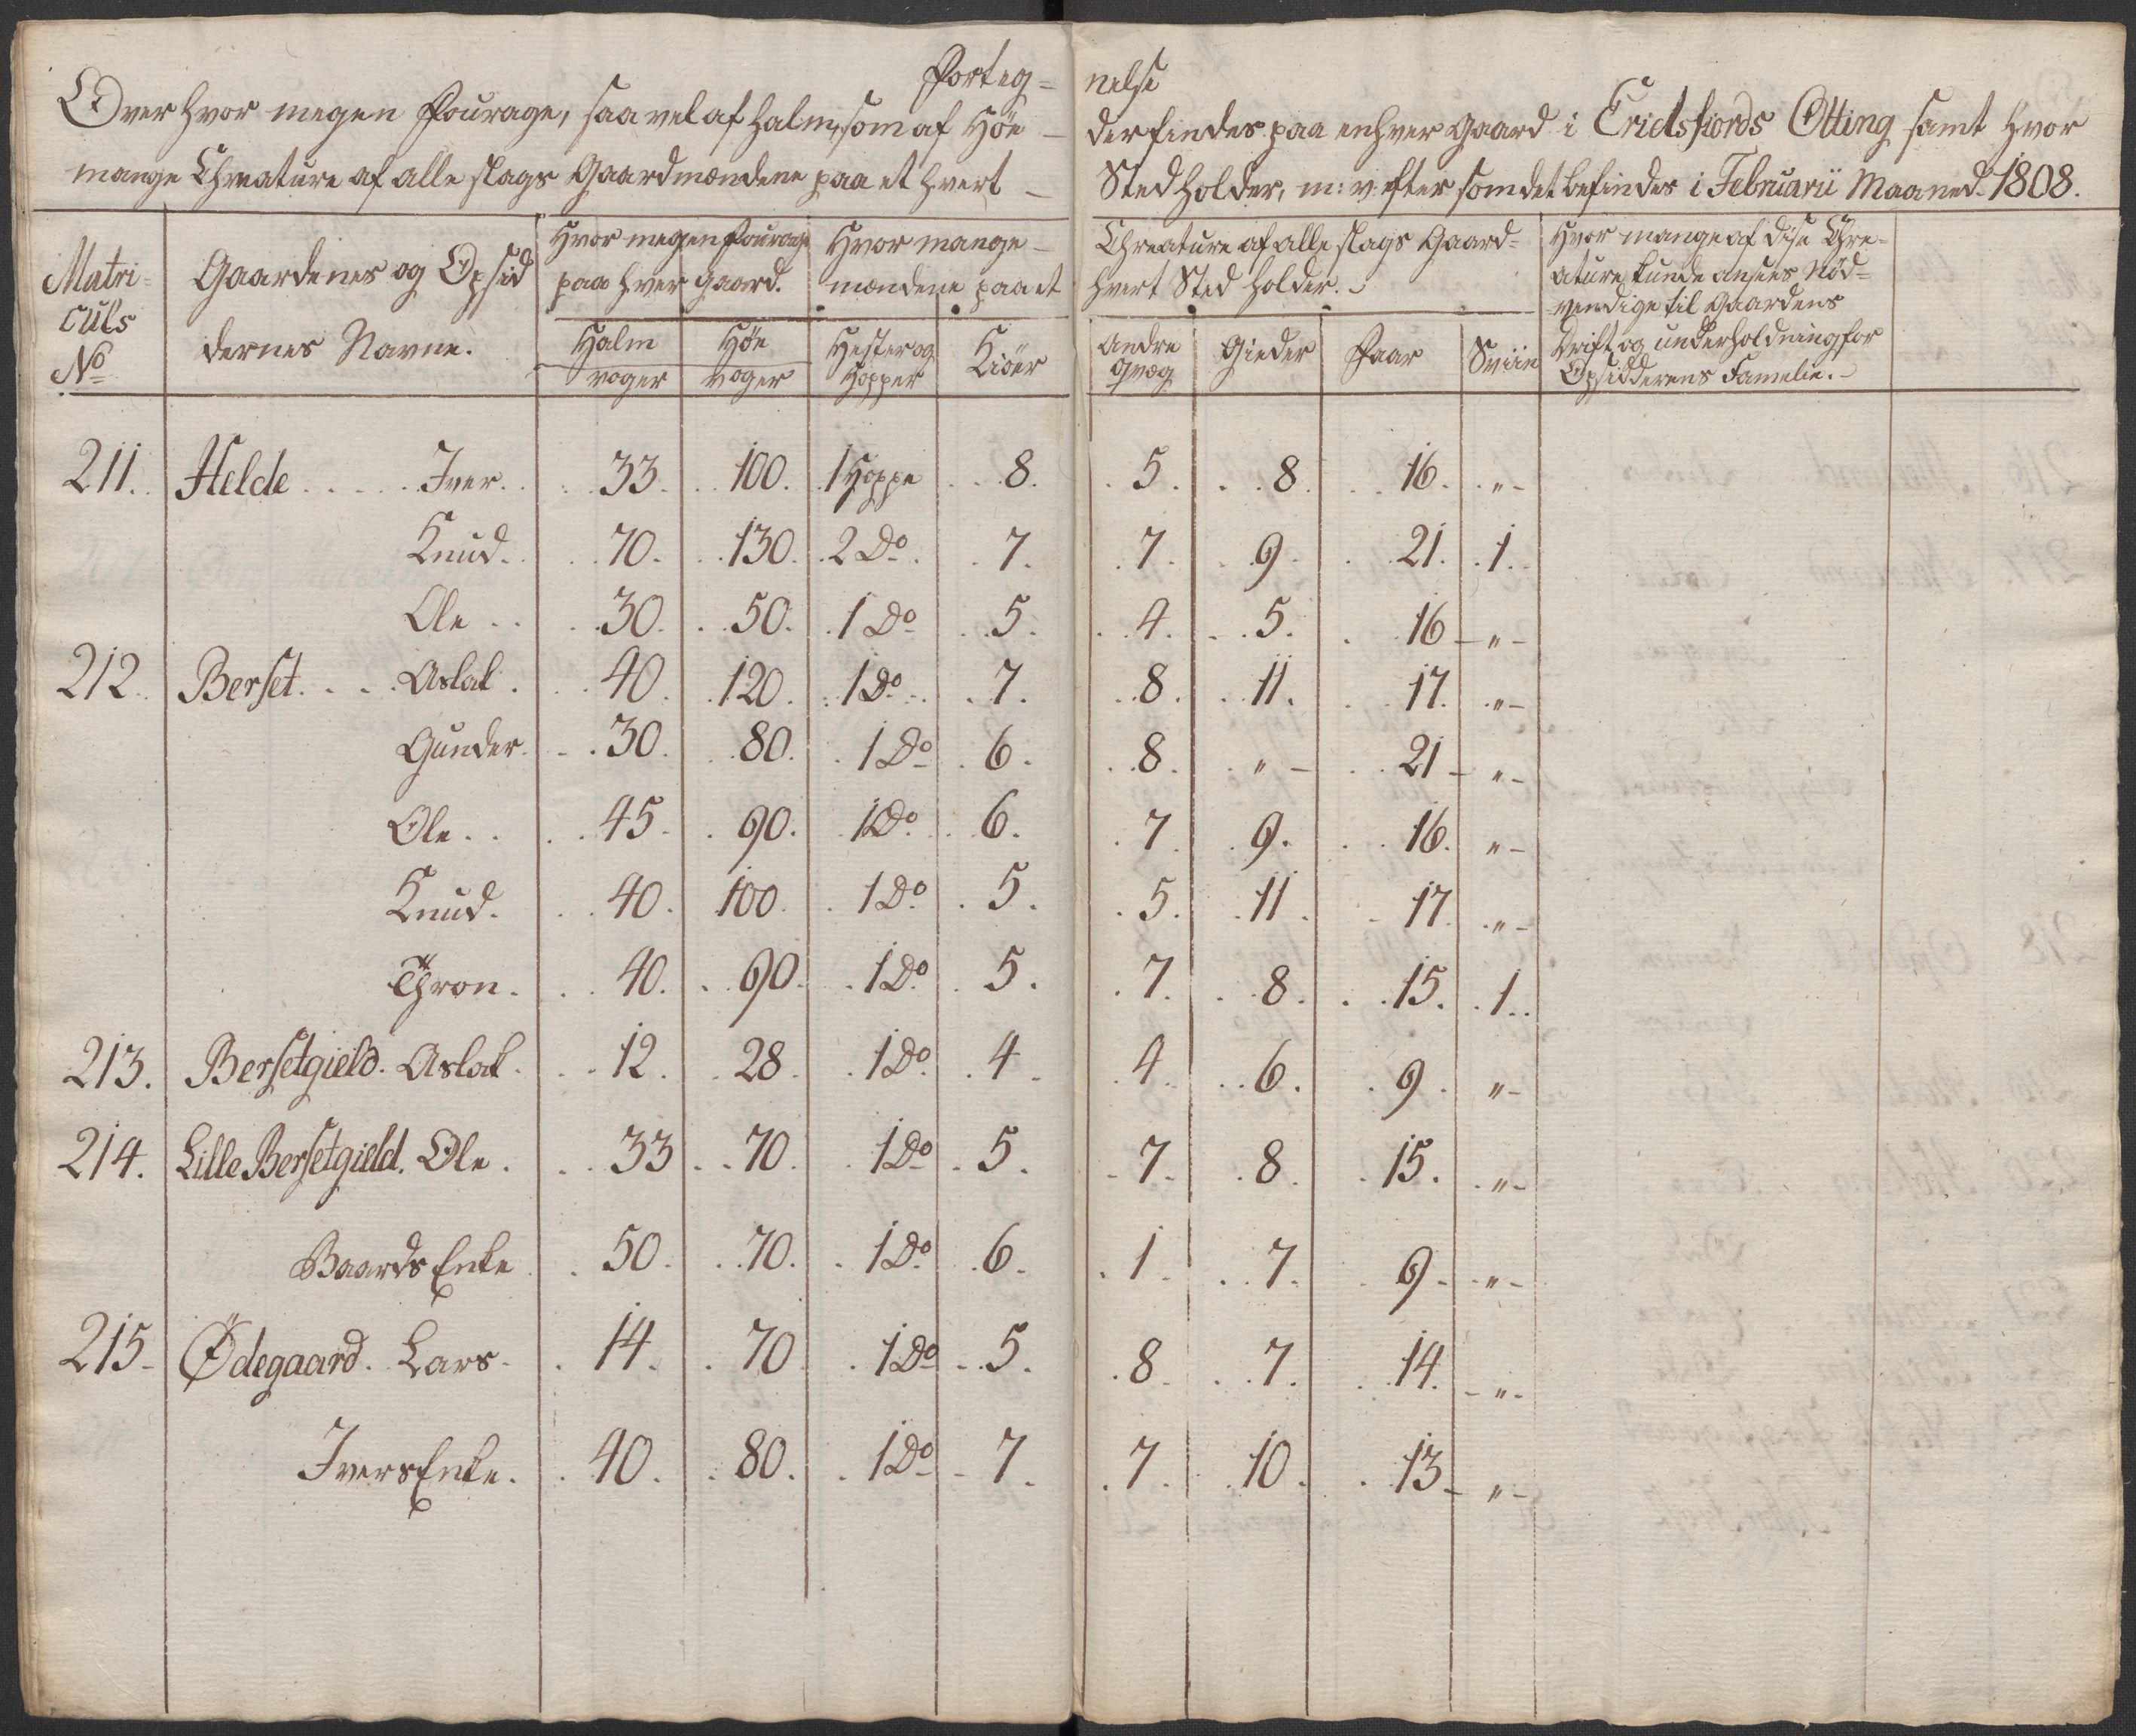 Forteg= nelse
Over hvor megen Fourage, saavel af Halm, som af Høe — der findes paa enhver Gaard i Erictsfiords Otting samt hvor
mange Chreature af alle slags Gaardmændene paa et hvert — Sted holder, m: v: efter som det befindes i Februarii Maaned 1808.
Matri-
culs
No
Gaardenes og Opsid
dernes Navne.
Hvor megen Fourage
paa hver Gaard.
Halm
voger
Høe
voger
Hvor mange —
mændene paa et
Hester og
Hopper
Kiöer
Chreature af alle slags Gaard=
hvert Sted holder.
Andre
Qvæg
Gieder
Faar
Sviin
Hvor mange af dise Chre-
ature kunde ansees Nød-
vendige til Gaardens
Drift og underholdning for
Opsidderens Familie.
211. Helde . . . . . Iver. . . 33. . 100. 1 Hoppe . . 8. . 5. . . 8. . . 16. . „ -
Knud. . . 70. . 130. . 2 Do. . 7. . 7. . . 9. . 21. . 1. .
Ole . . . 30. . . 50. . 1 Do . 5. . . 4. . . 5. . 16 - „ -
212. Berset. . . . Aslak . . . 40. . 120. . 1 Do . . 7. . . 8. . . 11. . 17. . „ -
Gunder. . . 30. . 80. . 1 Do . 6. . . 8. . „ - . . 21 - „ -
Ole. . . . 45. . 90. . 1 Do. . 6. . 7. . 9. . . 16. „ -
Knud. . . 40. 100. . 1 Do. . 5. . 5. . 11. . 17. . „ -
Thron. . . 40. . . 90. . 1 Do. . 5. . 7. . . 8. . . 15. . 1. .
213. Bersetgield. Aslak. . . 12. . 28. . 1 Do. . 4. . 4. . . 6. . 9. „ -
214. Lille Bersetgield. Ole. . . 33. . 70. . 1 Do . 5. . 7. . 8. . 15. . „ -
Baards Enke . 50. . . 70. . 1 Do. . 6. . 1. . . 7. . 9. . „ -
215. Ødegaard. Lars. . 14. . 70. . 1 Do . . 5. . 8. . . 7. . . 14. - „ -
Ivers Enke. . 40. . 80. . 1 Do - 7. . 7. . 10. . . 13 - „ -